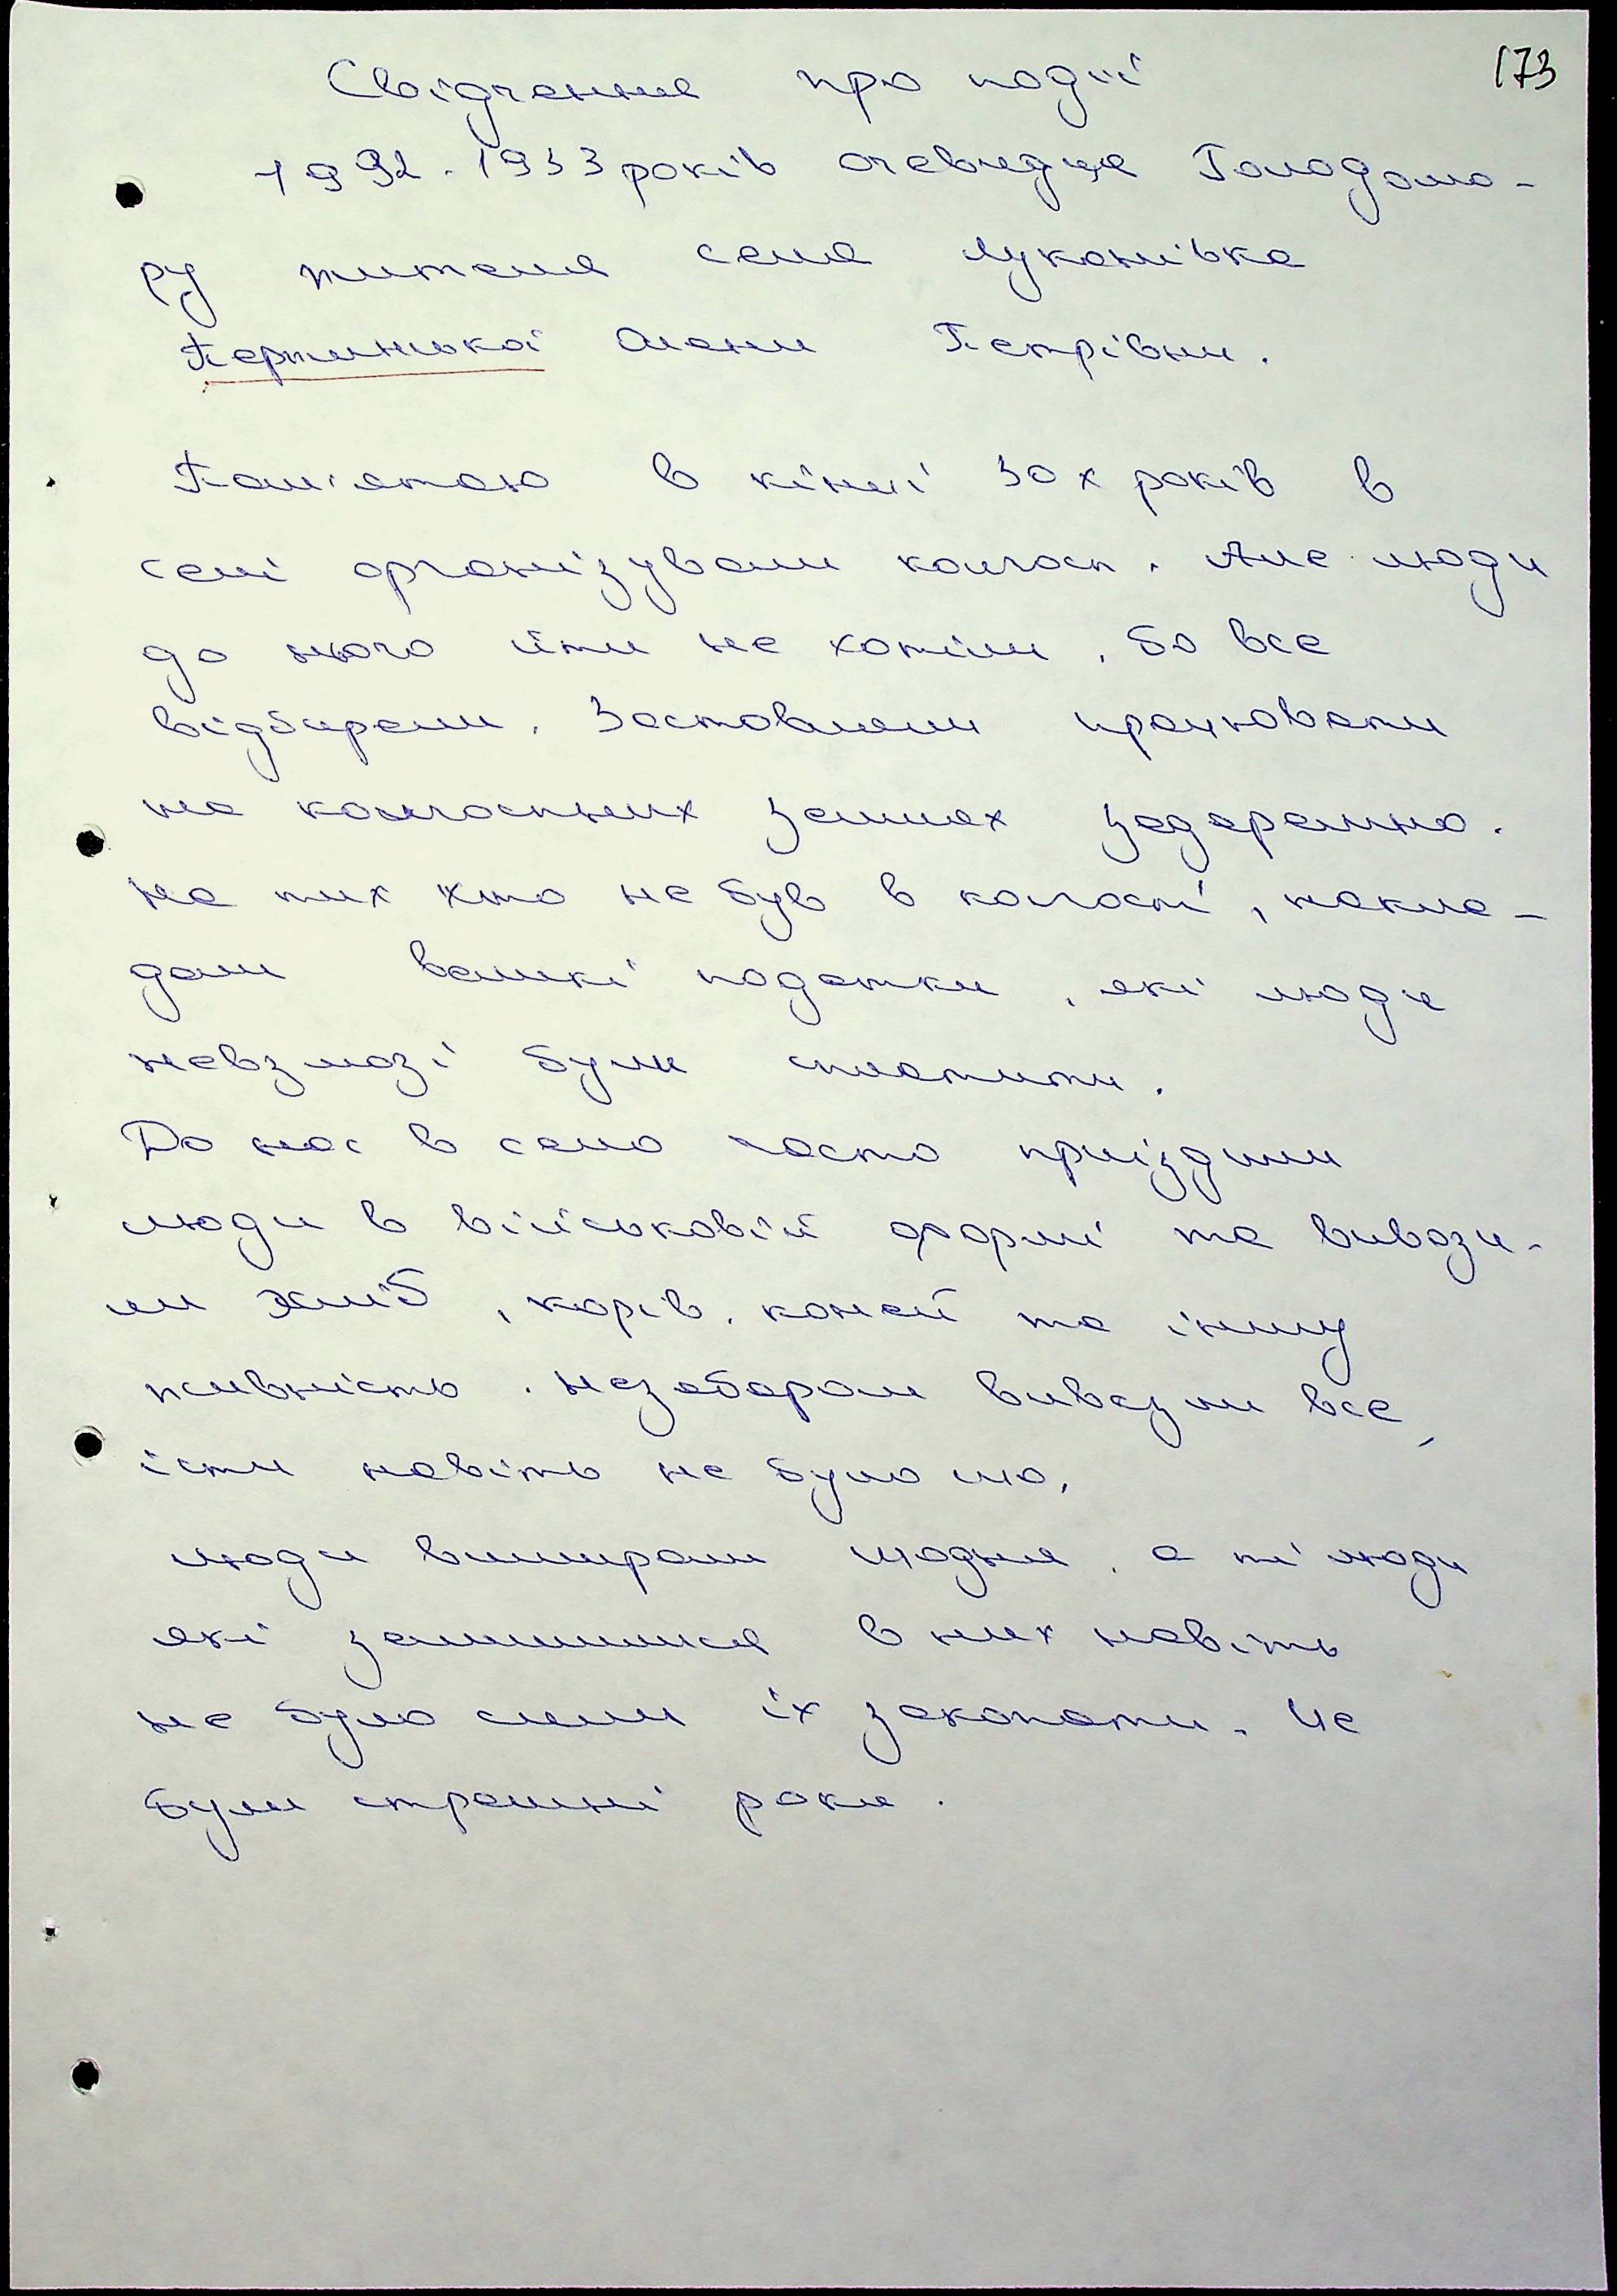 173
Свідчення про події
1932-1933 років очевидця Голодомо-
ру жителя села Луканівка
Олени Петрівни.
Пам'ятаю в кінці 30х років в
селі організували колгосп. Але люди
до нього йти не хотіли, бо все
відбирали. Заставляли працювати
на колгоспних землях задаремно.
На тих хто не був в колгоспі, накла-
дали великі податки, які люди
невзмозі були сплатити.
До нас в село часто приїздили
люди в військовій формі та вивози-
ли хліб, корів, коней та іншу
живність. Незабаром вивезли все,
їсти навіть не було що.
Люди вимирали щодня, а ті люди
які залишилися в них навіть
не було сили їх закопати. Це
були страшні роки.